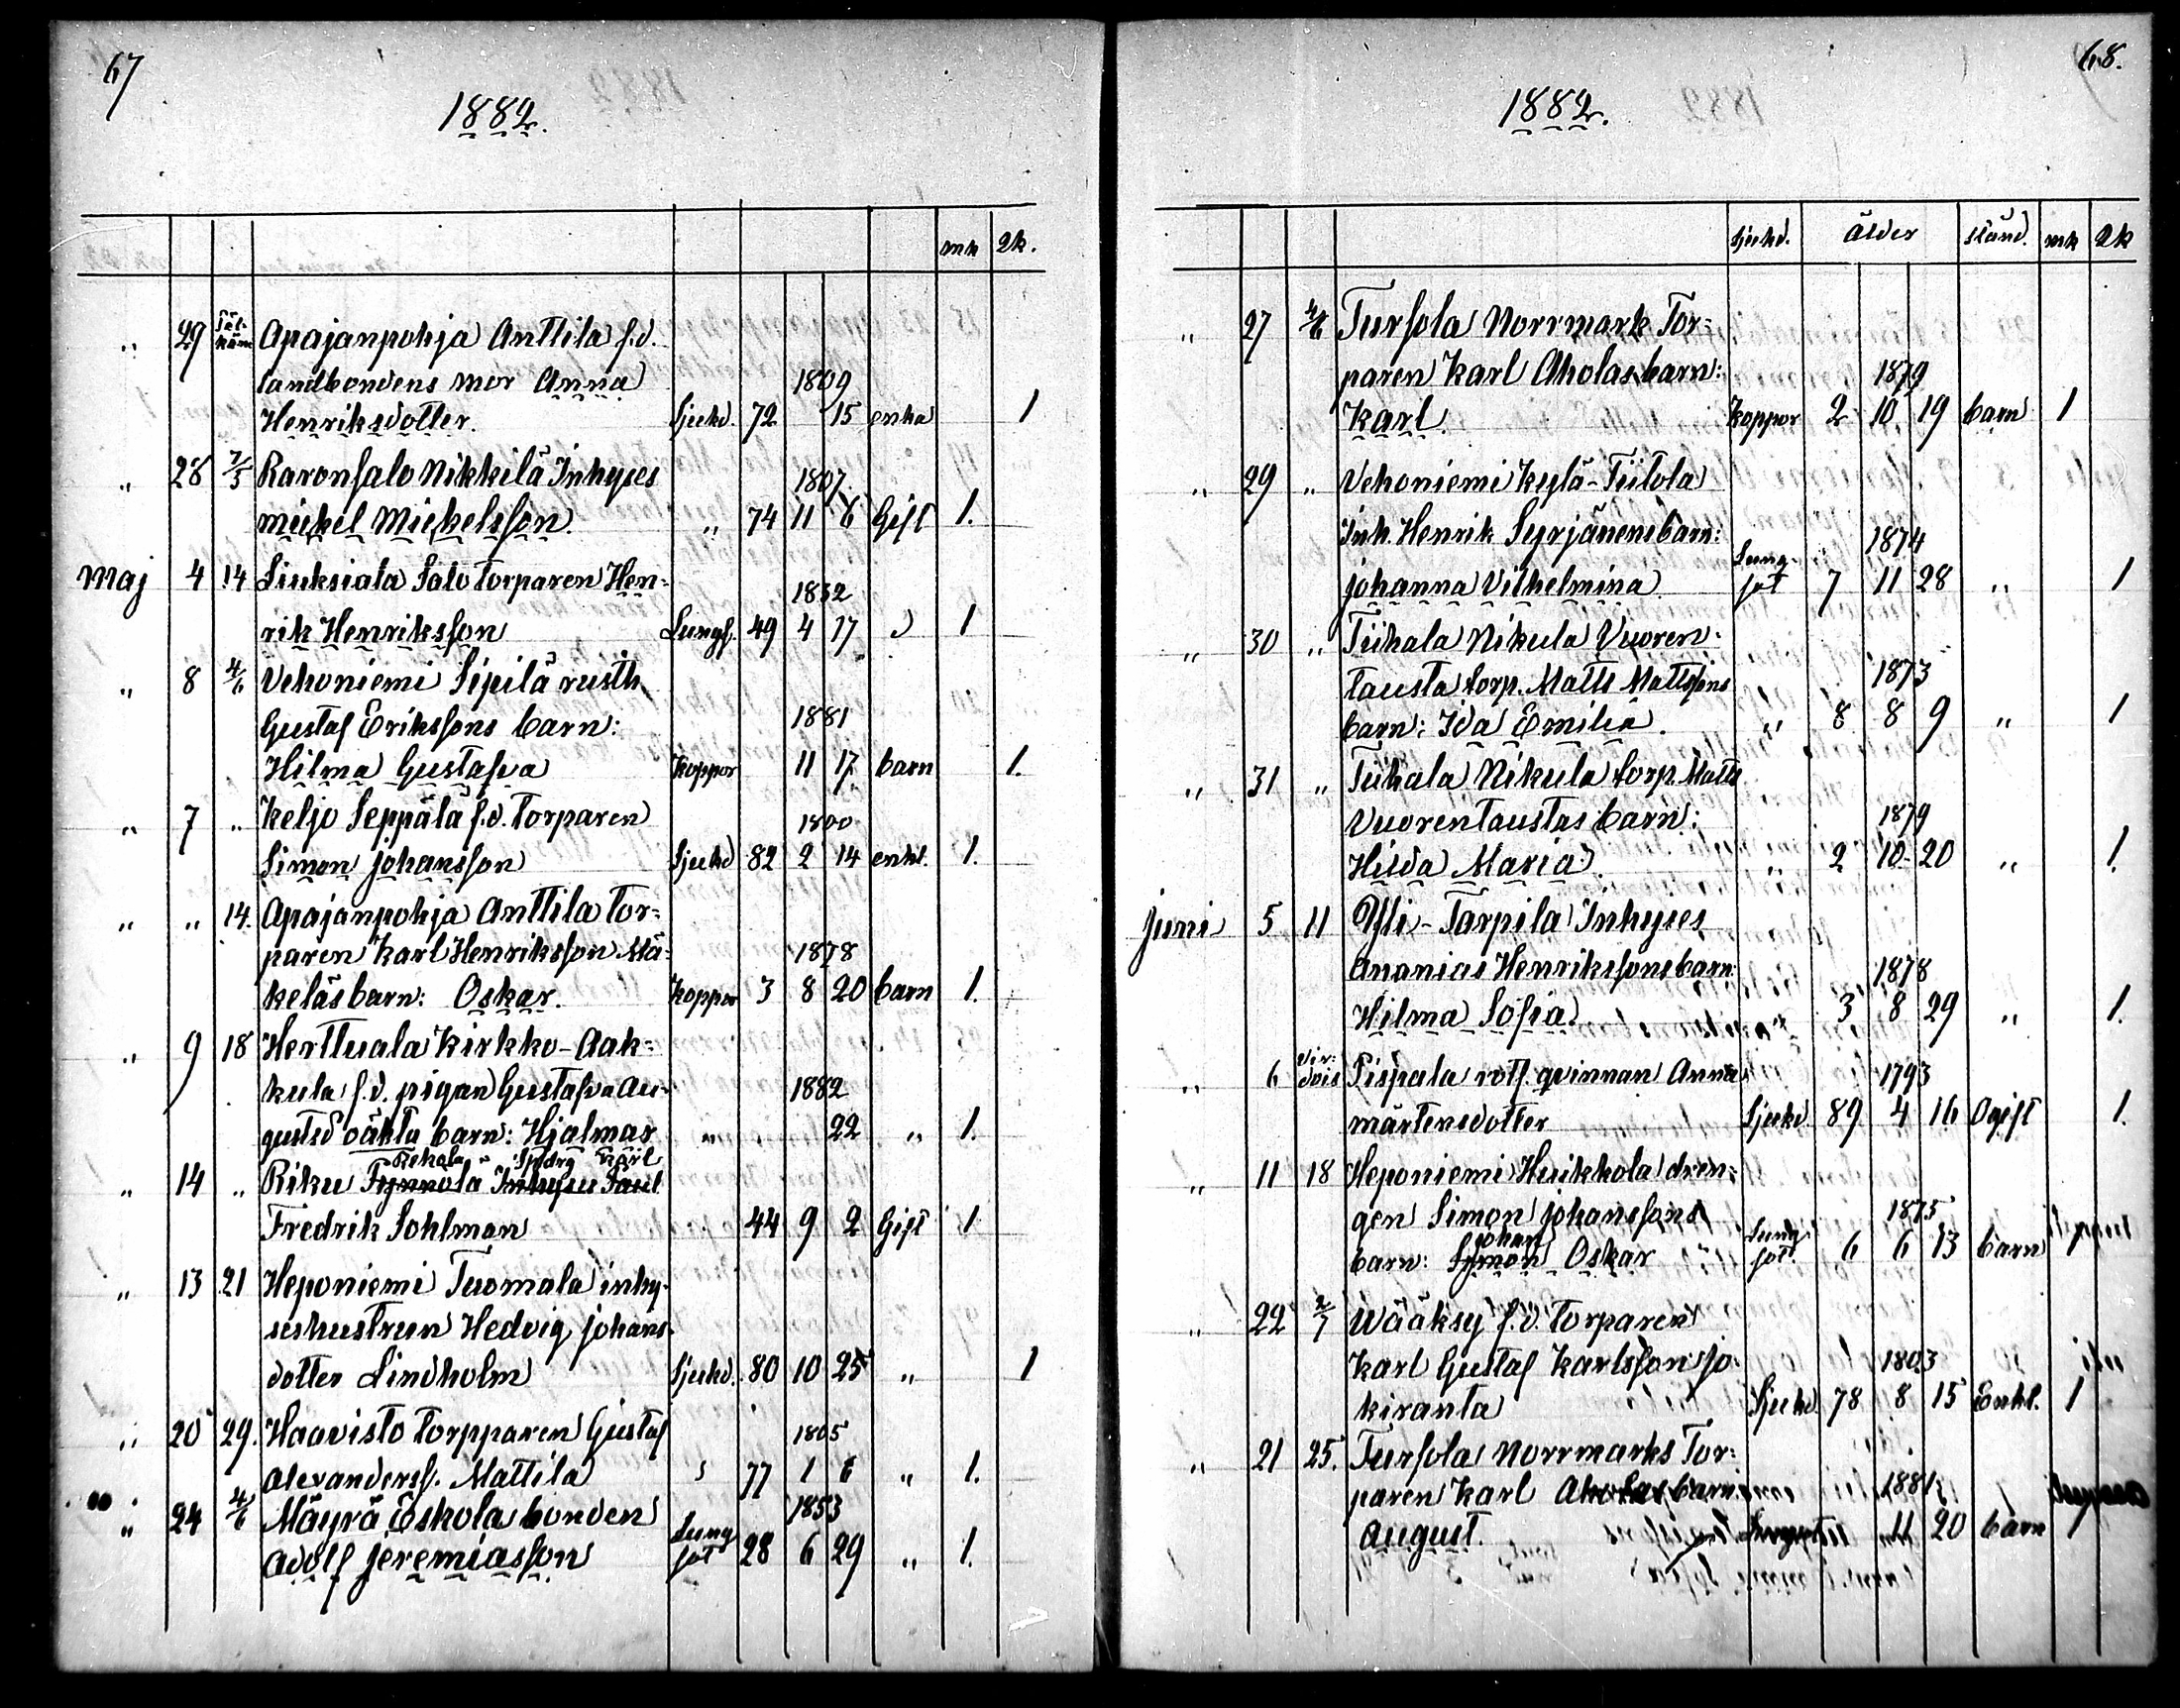 67
1882.
mk qk.
„ 29 Säl-
käm Apajanpohja Anttila f.d.
landbondens mor Anna 1809
Henriksdotter. Sjukd. 72 15 enka 1
„ 28 7/5 Raronsalo Nikkilä Inhyses 1807
Mickel Mickelsson. „ 74 11 6 Gift 1.
Maj 4 14 Liuksiala Salo torparen Hen- 1832
rik Henriksson Lungs. 49 4 17 „ 1
„ 8 4/6 Vehoniemi Sipilä rusth.
Gustaf Erikssons barn: 1881
Hilma Gustafva Koppor 11 17 barn 1.
„ 7 „ Keljo Seppälä f.d. Torparen 1800
Simon Johansson Sjukd 82 2 14 enkl. 1.
„ „ 14. Apajanpohja Anttila Tor-
paren Karl Henriksson Mä- 1878
keläs barn: Oskar. Koppor 3 8 20 barn 1.
„ 9 18 Herttuala Kirkko-Aak-
kula f.d. pigan Gustafva Au- 1882
gustsd oäkta barn: Hjalmar „ 22 „ 1.
Rekola Spdrg Karl
„ 14 „ Riku Tynnolä Inhyses Paul
Fredrik Sohlman 44 9 2 Gift 1
„ 13 21 Heponiemi Tuomala inhy-
seshustrun Hedvig Johans-
dotter Lindholm Sjukd. 80 10 25 „ 1
„ 20 29. Haavisto torpparen Gustaf 1805
Alexanderss. Mattila „ 77 1 6 „ 1.
„ 24 4/6 Mäyrä Eskola bonden 1853
Adolf Jeremiasson Lung
sot 28 6 29 „ 1.
68.
1882.
Sjukd. ålder stånd. mk qk
„ 27 4/6 Tursola Norrmark Tor-
paren Karl Aholas barn: 1879
Karl. Koppor 2 10 19 barn 1
„ 29 „ Vehoniemi Kylä-Tiitola
Inh. Henrik Syrjänens barn: 1874
Johanna Vilhelmina Lung
sot 7 11 28 „ 1
„ 30 „ Tiihala Nikula Vuoren-
tausta torp. Matts Mattssons 1873
barn: Ida Emilia. „ 8 8 9 „ 1
„ 31 „ Tiihala Nikula torp. Matts
Vuorentaustas barn: 1879
Hilda Maria. „ 2 10 20 „ 1.
Juni 5 11 Yli-Tarpila Inhyses
Ananias Henrikssons barn: 1878
Hilma Sofia. 3 8 29 „ 1.
„ 6 Vir-
dois Pispala rotf. qvinnan Anna 1793
Mårtensdotter Sjukd. 89 4 16 Ogift 1.
„ 11 18 Heponiemi Huikkola dren-
gen Simon Johanssons 1875
Johan
barn: Simon Oskar Lung
sot. 6 6 13 barn 1
„ 22 2/7 Wääksy f.d. Torparen
Karl Gustaf Karlsson Jo- 1803
kiranta Sjukd. 78 8 15 Enkl. 1
„ 21 25. Tursola Norrmarks Tor-
paren Karl Aholas barn: 1881
August. 11 20 barn 1